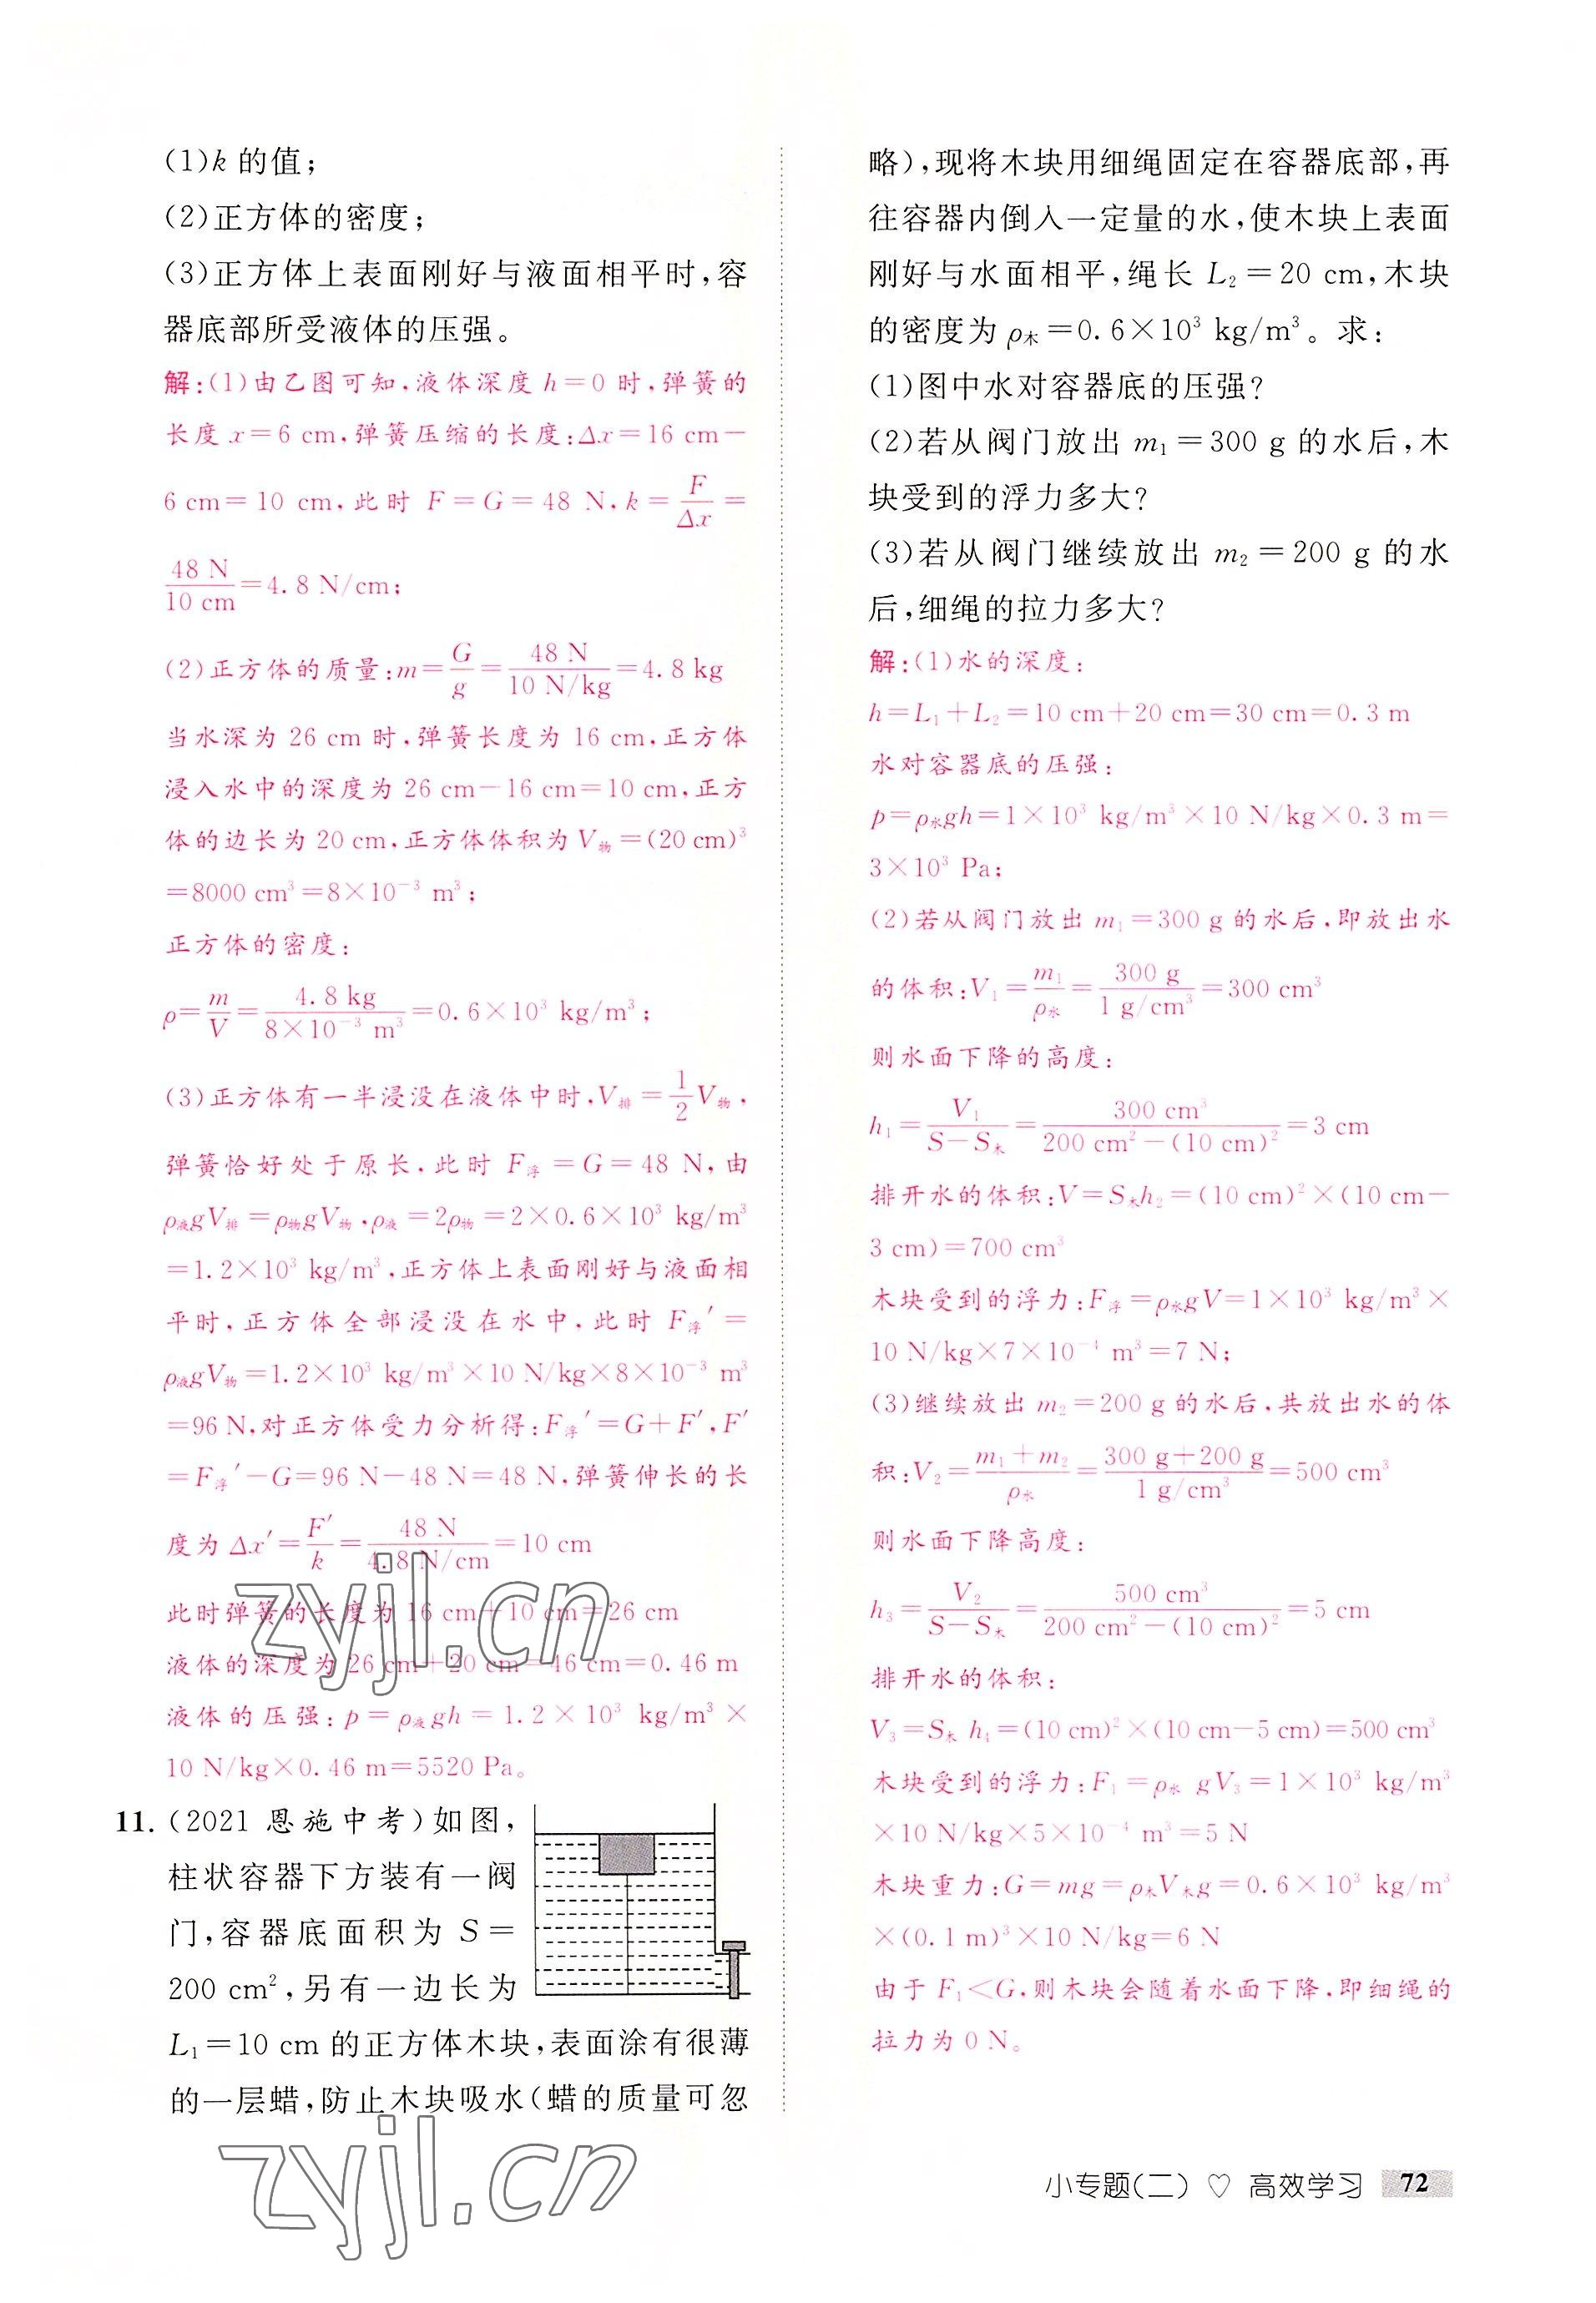 (1)k 的值;
(2)正方体的密度;
(3)正方体上表面刚好与液面相平时,容
器底部所受液体的压强。
解:(1)由乙图可知,液体深度 h=0 时,弹簧的
长度 x=6 cm,弹簧压缩的长度:Δx=16 cm−
6 cm=10 cm,此时 F=G=48 N,k=F/Δx=
48 N/10 cm=4.8 N/cm;
(2)正方体的质量:m=G/g=48 N/10 N/kg=4.8 kg
当水深为 26 cm 时,弹簧长度为 16 cm,正方体
浸入水中的深度为 26 cm−16 cm=10 cm,正方
体的边长为 20 cm,正方体体积为 V物=(20 cm)³
=8000 cm³=8×10⁻³ m³;
正方体的密度:
ρ=m/V=4.8 kg/8×10⁻³ m³=0.6×10³ kg/m³;
(3)正方体有一半浸没在液体中时,V排=1/2V物,
弹簧恰好处于原长,此时 F浮=G=48 N,由
ρ液gV排=ρ物gV物,ρ液=2ρ物=2×0.6×10³ kg/m³
=1.2×10³ kg/m³,正方体上表面刚好与液面相
平时,正方体全部浸没在水中,此时 F浮′=
ρ液gV物=1.2×10³ kg/m³×10 N/kg×8×10⁻³ m³
=96 N,对正方体受力分析得:F浮′=G+F′,F′
=F浮′−G=96 N−48 N=48 N,弹簧伸长的长
度为 Δx′=F′/k=48 N/4.8 N/cm=10 cm
此时弹簧的长度为 16 cm+10 cm=26 cm
液体的深度为 26 cm+20 cm=46 cm=0.46 m
液体的压强:p=ρ液gh=1.2×10³ kg/m³×
10 N/kg×0.46 m=5520 Pa。
11.(2021恩施中考)如图,
柱状容器下方装有一阀
门,容器底面积为 S=
200 cm²,另有一边长为
L₁=10 cm 的正方体木块,表面涂有很薄
的一层蜡,防止木块吸水(蜡的质量可忽
略),现将木块用细绳固定在容器底部,再
往容器内倒入一定量的水,使木块上表面
刚好与水面相平,绳长 L₂=20 cm,木块
的密度为 ρ木=0.6×10³ kg/m³。求:
(1)图中水对容器底的压强?
(2)若从阀门放出 m₁=300 g 的水后,木
块受到的浮力多大?
(3)若从阀门继续放出 m₂=200 g 的水
后,细绳的拉力多大?
解:(1)水的深度:
h=L₁+L₂=10 cm+20 cm=30 cm=0.3 m
水对容器底的压强:
p=ρ水gh=1×10³ kg/m³×10 N/kg×0.3 m=
3×10³ Pa;
(2)若从阀门放出 m₁=300 g 的水后,即放出水
的体积:V₁=m₁/ρ水=300 g/1 g/cm³=300 cm³
则水面下降的高度:
h₁=V₁/S−S木=300 cm³/200 cm²−(10 cm)²=3 cm
排开水的体积:V=S木h₂=(10 cm)²×(10 cm−
3 cm)=700 cm³
木块受到的浮力:F浮=ρ水gV=1×10³ kg/m³×
10 N/kg×7×10⁻⁴ m³=7 N;
(3)继续放出 m₂=200 g 的水后,共放出水的体
积:V₂=m₁+m₂/ρ水=300 g+200 g/1 g/cm³=500 cm³
则水面下降高度:
h₃=V₂/S−S木=500 cm³/200 cm²−(10 cm)²=5 cm
排开水的体积:
V₃=S木 h₄=(10 cm)²×(10 cm−5 cm)=500 cm³
木块受到的浮力:F₁=ρ水 gV₃=1×10³ kg/m³
×10 N/kg×5×10⁻⁴ m³=5 N
木块重力:G=mg=ρ木V木g=0.6×10³ kg/m³
×(0.1 m)³×10 N/kg=6 N
由于 F₁<G,则木块会随着水面下降,即细绳的
拉力为 0 N。
zyjl.cn
zyjl.cn
小专题(二) ♡ 高效学习 72